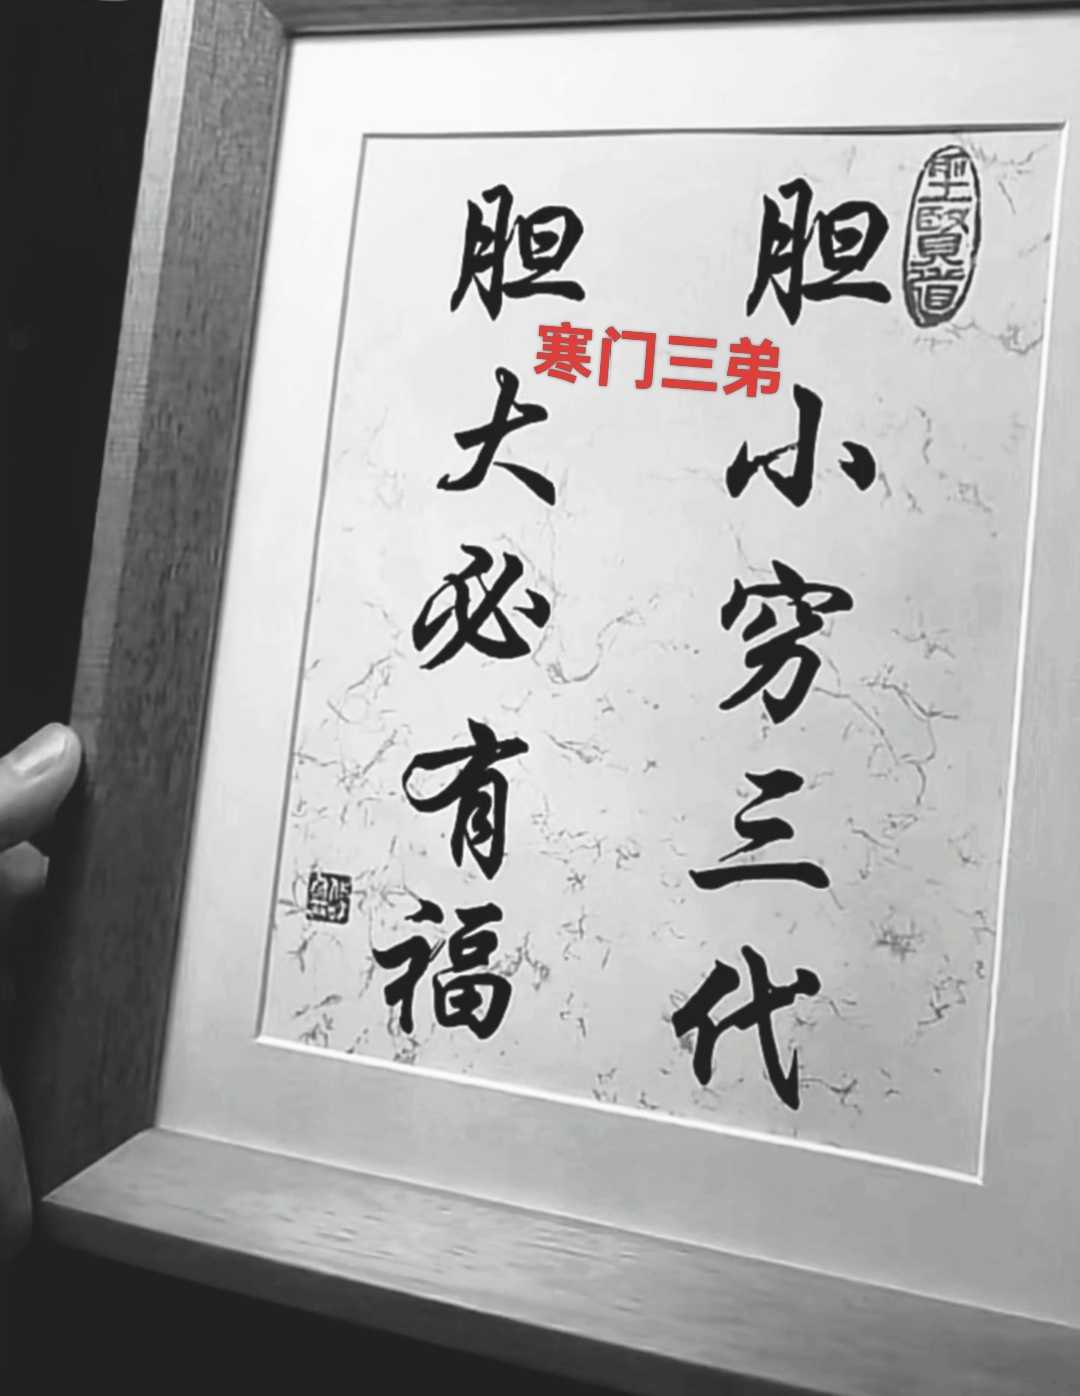 聖賢道
胆小穷三代
胆大必有福
寒门三弟